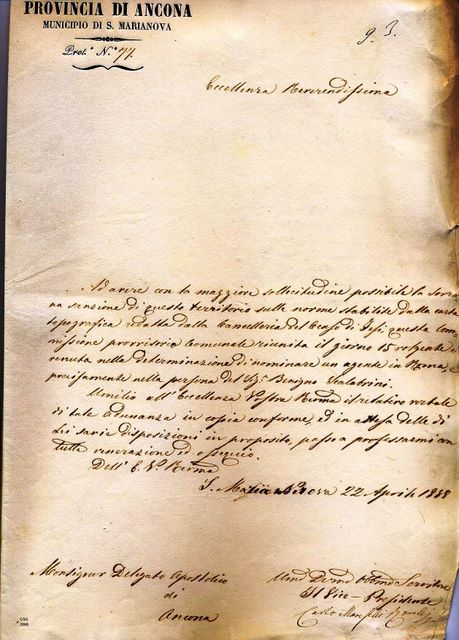 PROVINCIA DI ANCONA
MUNICIPIO DI S. MARIANOVA
Prot.º N.º 77.
g. 3.
Eccellenza Reverendissima
Ad avere con la maggior sollecitudine possibile la Sovra
na sanzione di questo territorio sulle norme stabilite dalla carta
topografica redatta dalla Cancelleria del Censo di Jesi, questa Com
missione provvisoria Comunale riunita il giorno 15 volgente è
venuta nella determinazione di nominare un agente in Roma, e
precisamente nella persona del Sig. Benigno Scalabrini.
Umilio all'Eccellenza Vostra Rma il relativo verbale
di tale adunanza in copia conforme, ed in attesa delle di
Lei savie disposizioni in proposito, passo a professarmi con
tutta venerazione ed ossequio.
Dell'E. V. Rma
S. Maria Nova 22 Aprile
Monsignor Delegato Apostolico
di
Ancona
Umo Devmo Obbmo Servitore
Il Vice-Presidente
Carlo